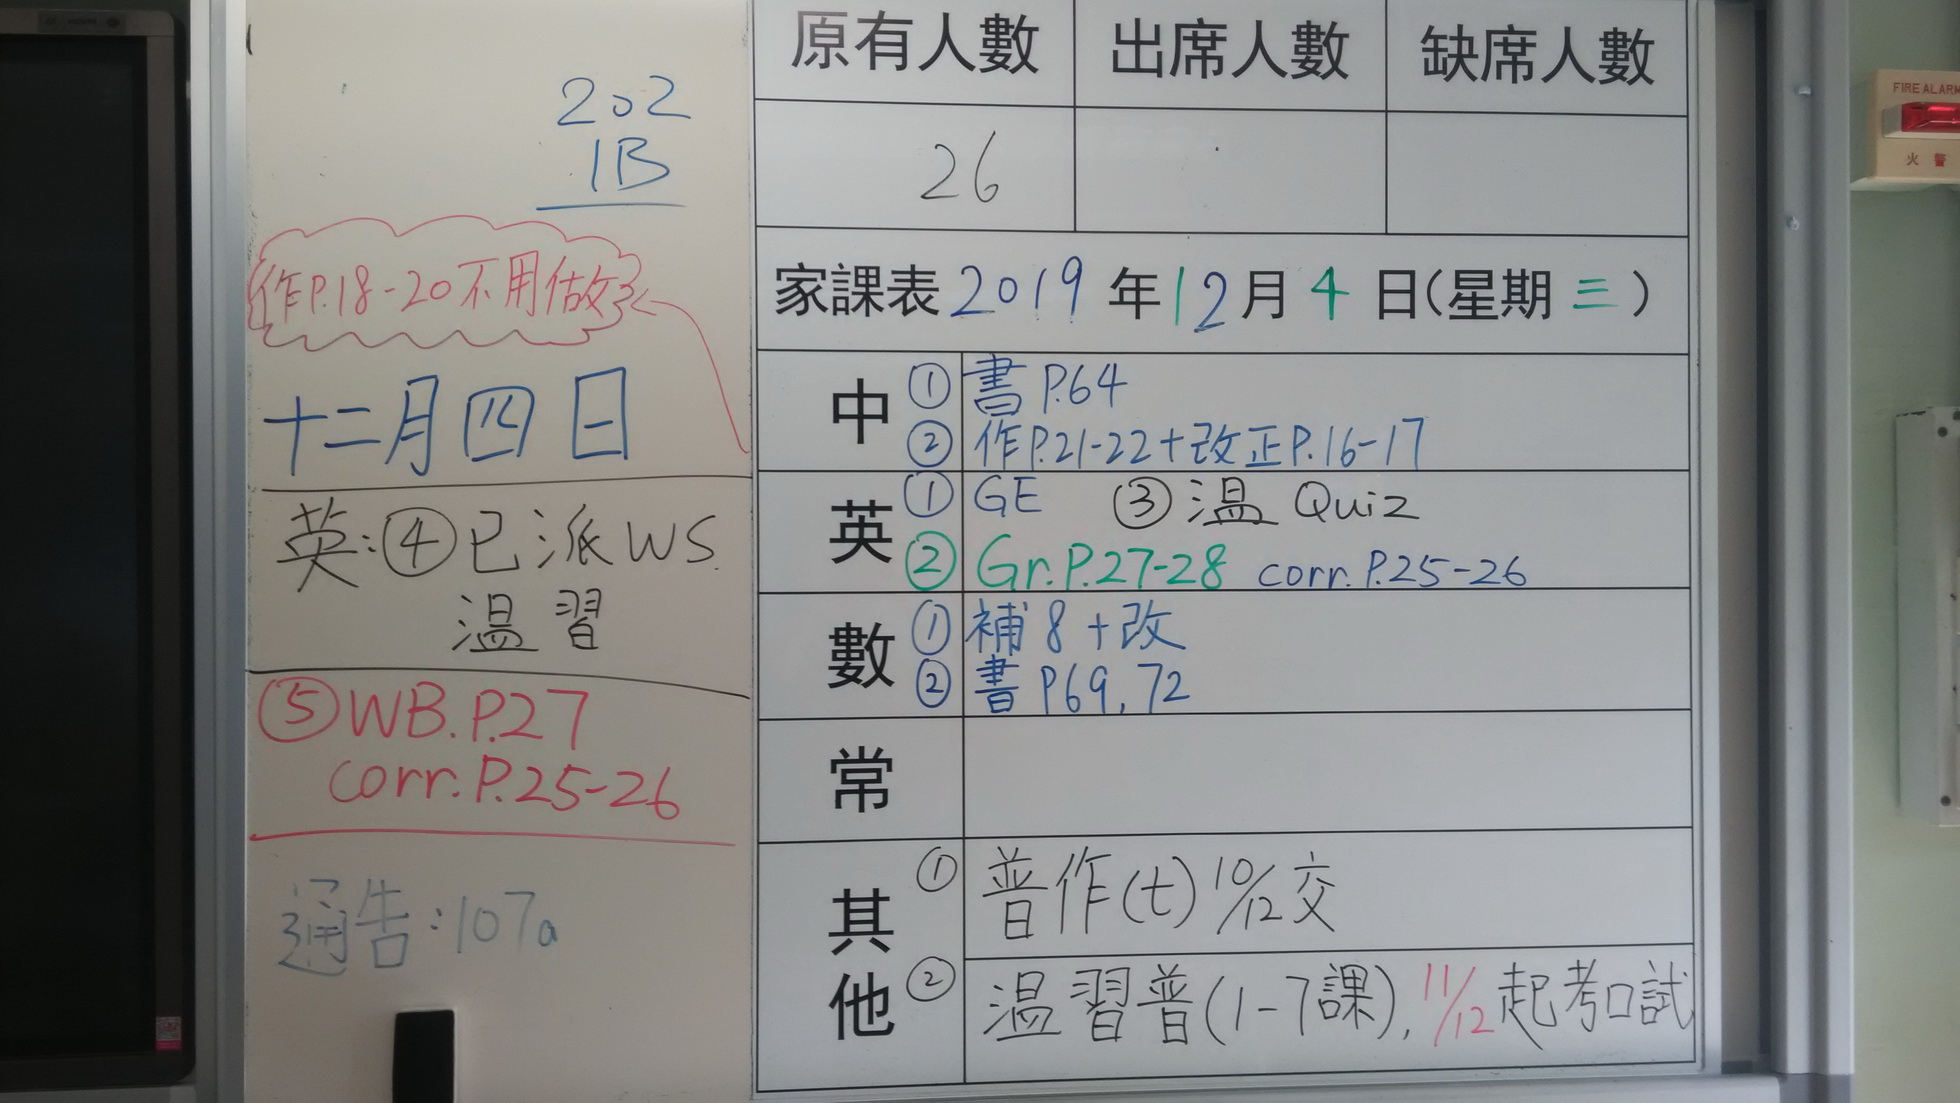 202
1B
作P.18-20不用做
十二月四日
英:④已派WS.
温習
⑤WB.P.27
corr.P.25-26
通告:107a
原有人數 出席人數 缺席人數
26
家課表2019年12月4日(星期三)
中 ①書P.64
②作P.21-22+改正P.16-17
英 ①GE ③温 Quiz
②Gr.P.27-28 corr.P.25-26
數 ①補8+改
②書P69,72
常
其他 ①普作(七)10/12交
②温習普(1-7課),11/12起考口試
FIRE ALARM
火警